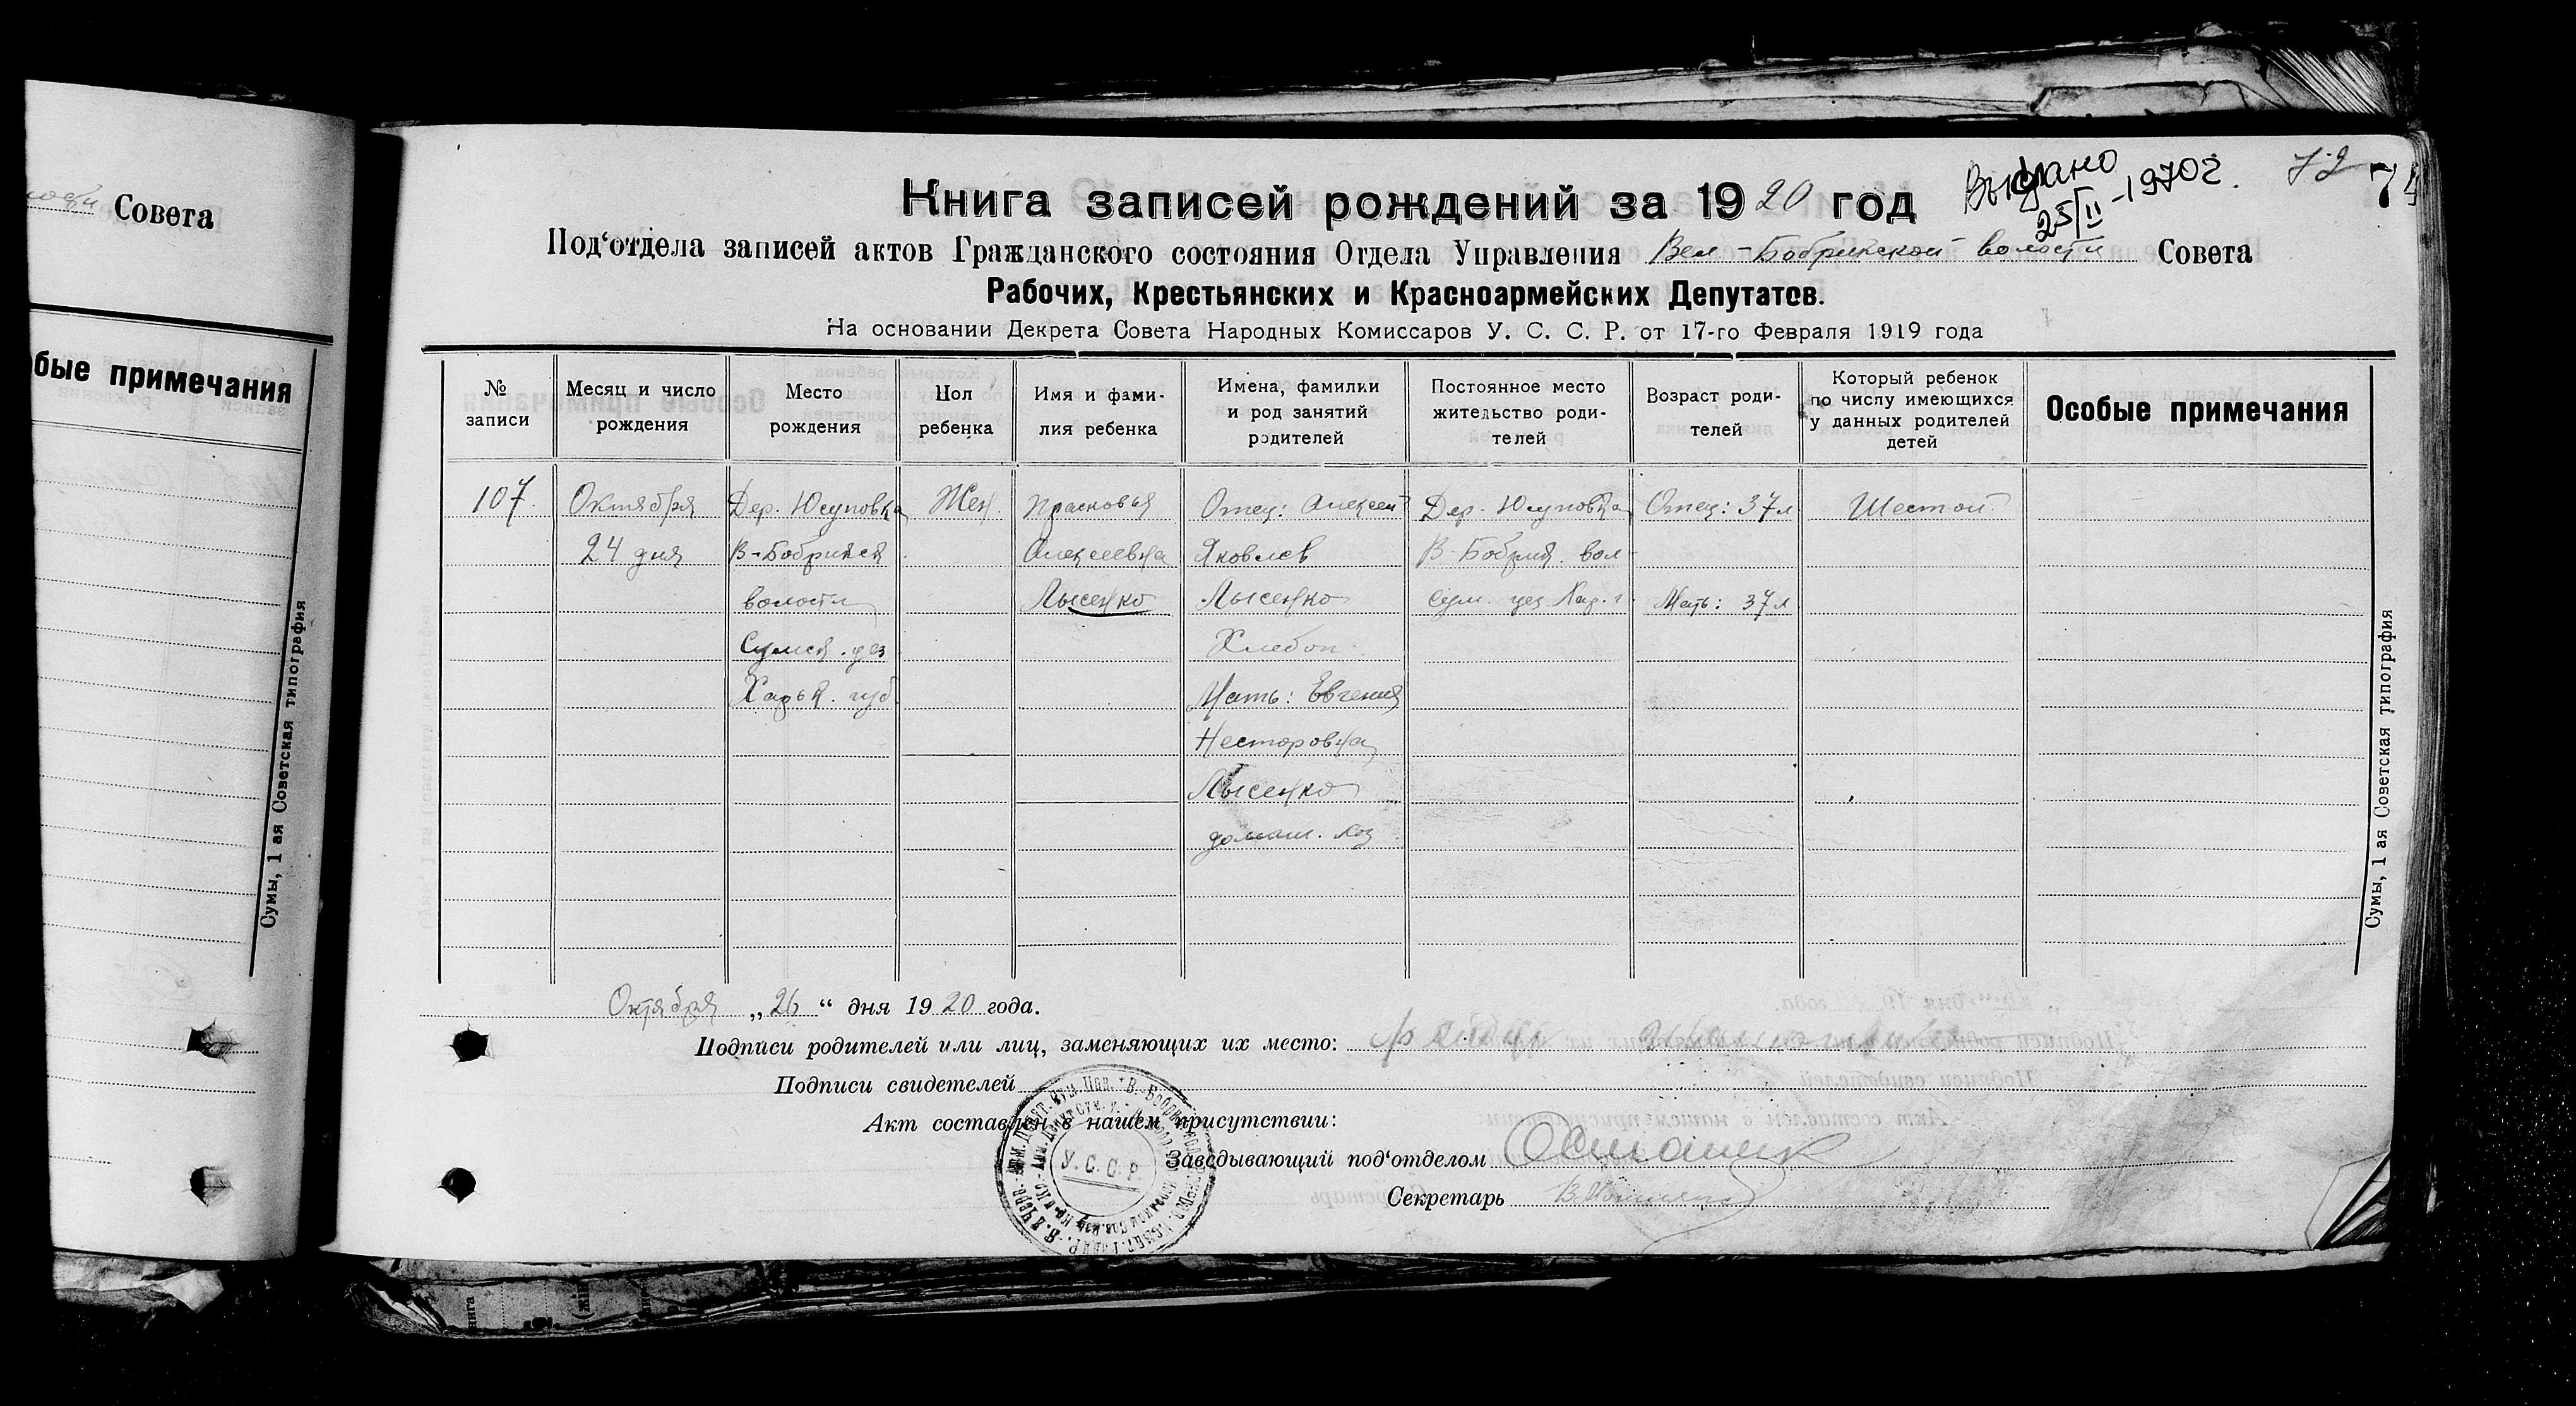 Совета
бые примечания
Сумы, 1 ая Советская типография
Выдано
25/II-1970г.
72
74
Книга записей рождений за 1920 год
Под‘отдела записей актов Гражданского состояния Отдела Управления Вел-Бобрикской волости Совета
Рабочих, Крестьянских и Красноармейских Депутатов.
На основании Декрета Совета Народных Комиссаров У. С. С. Р. от 17-го Февраля 1919 года
№ записи
Месяц и число рождения
Место рождения
Пол ребенка
Имя и фами-
лия ребенка
Имена, фамилии
и род занятий
родителей
Постоянное место
жительство роди-
телей
Возраст роди-
телей
Который ребенок
по числу имеющихся
у данных родителей
детей
Особые примечания
107. Октября Дер. Юсуповка Жен. Прасковья Отец: Алексей Дер. Юсуповка Отец: 37 л Шестой
24 дня В-Бобрикск Алексеевна Яковлев В-Бобрик. вол
волости Лысенко Лысенко Сум. уез Хар. г. Мать: 37 л
Сумск. уез Хлебоп.
Харьк. губ. Мать: Евгения
Несторовна
Лысенко
домаш. хоз
Октября „26“ дня 1920 года.
Подписи родителей или лиц, заменяющих их место:
Подписи свидетелей
Акт составлен в нашем присутствии:
Заведывающий под‘отделом
Секретарь
У.С.С.Р.
Сумы, 1 ая Советская типография